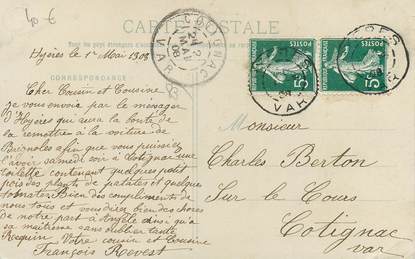 40 €
CARTE POSTALE
Hyères le 1er Mai 1908
COTIGNAC
MAI
08
VAR
HYÈRES
VAR
CORRESPONDANCE
Cher Cousin et Cousine
je vous envoie par le ménager
d'Hyères qui aura la bonté de
la remettre à la voiture de
Brignoles afin que vous puissiez
l'avoir samedi soir à Cotignac une
toilette contenant quelques petit
pois des plants de patates et quelques
tomates Bien des compliments de
nous tous et vous direz bien des choses
de notre part à Angèle ainsi qu'à
sa maîtresse sans oublier tante
Requin Votre cousin et Cousine
François Revest
Monsieur
Charles Berton
Sur le Cours
Cotignac
var